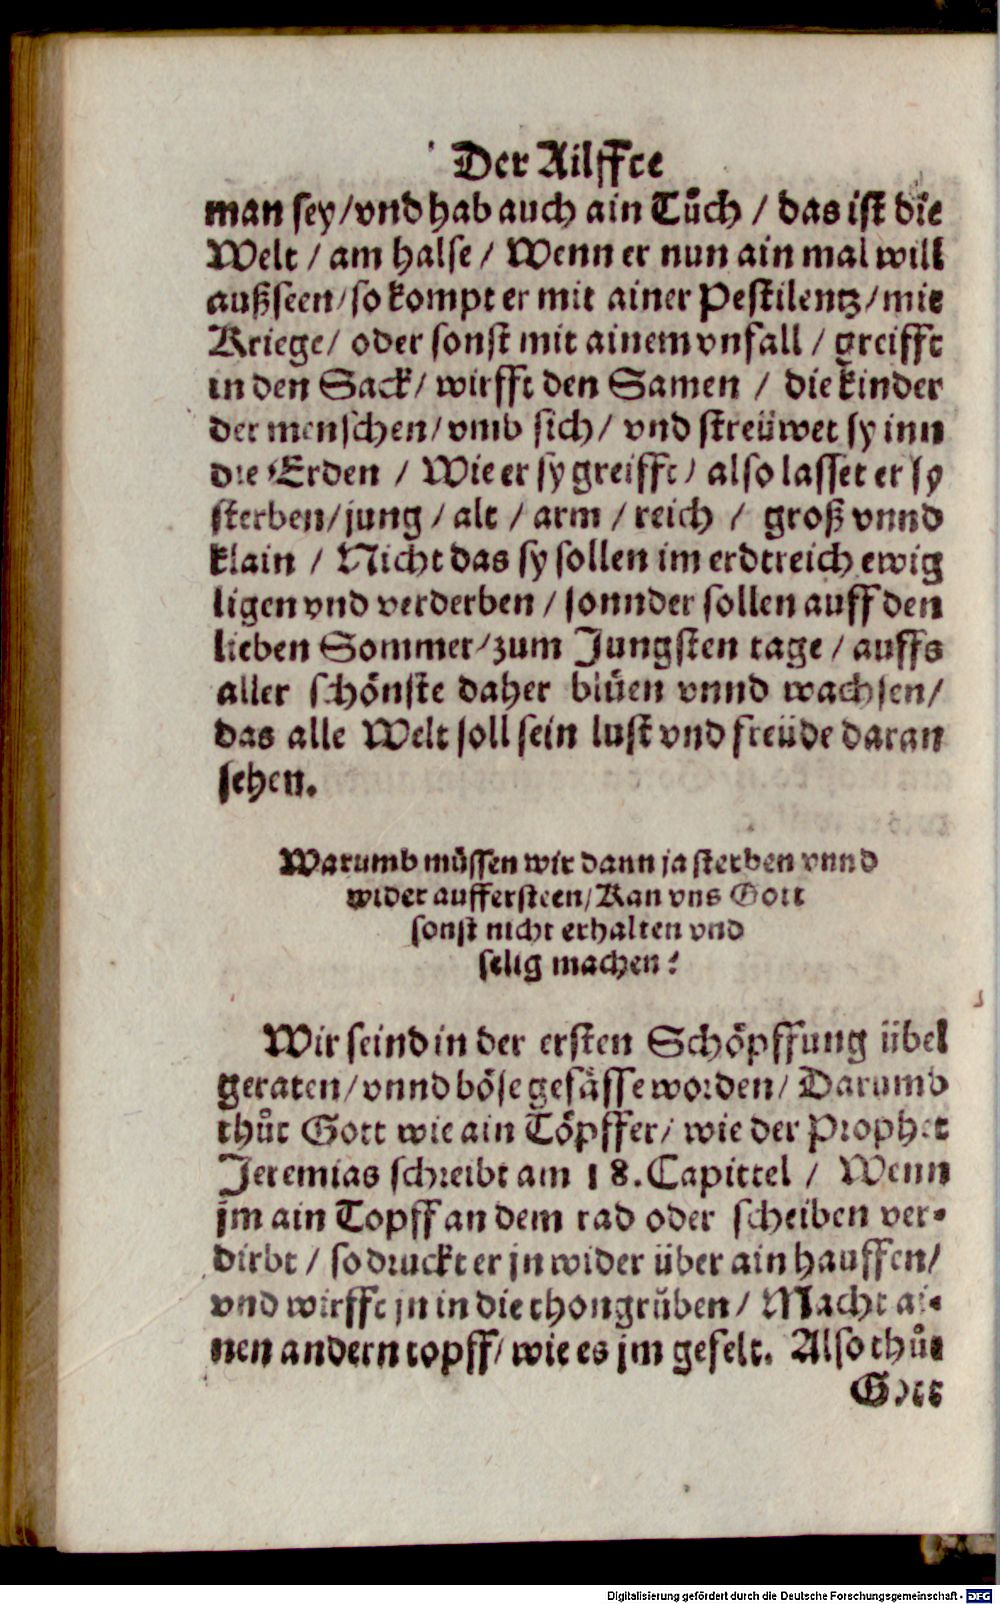 Der Ailffte
man sey/vnd hab auch ain Tůch / das ist die
Welt / am halse / Wenn er nun ain mal will
außseen/so kompt er mit ainer Pestilentz/mit
Kriege/ oder sonst mit ainem vnfall / greifft
in den Sack/ wirfft den Samen / die kinder
der menschen/vmb sich/ vnd streüwet sy inn
die Erden / Wie er sy greifft/ also lasset er sy
sterben/jung / alt / arm / reich / groß vnnd
klain / Nicht das sy sollen im erdtreich ewig
ligen vnd verderben / sonnder sollen auff den
lieben Sommer/zum Jungsten tage / auffs
aller schönste daher blüen vnnd wachsen/
das alle Welt soll sein lust vnd freüde daran
sehen.
Warumb müssen wir dann ja sterben vnnd
wider aufferste​en/Kan vns Gott
sonst nicht erhalten vnd
selig machen?
Wir seind in der ersten Schöpffung übel
geraten/vnnd böse gefässe worden/ Darumb
thůt Gott wie ain Töpffer/ wie der Prophet
Jeremias schreibt am 18. Capittel / Wenn
jm ain Topff an dem rad oder scheiben ver-
dirbt / so druckt er jn wider über ain hauffen/
vnd wirfft jn in die thongrůben / Macht ai-
nen andern topff/ wie es jm gefelt. Also thůt
Gott
Digitalisierung gefördert durch die Deutsche Forschungsgemeinschaft - DFG